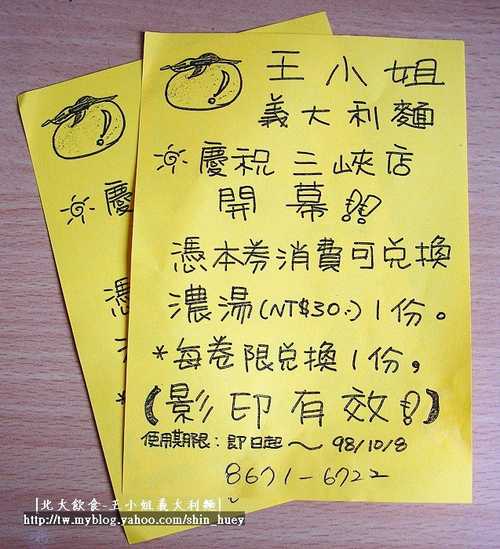 王小姐
義大利麵
慶祝三峽店
開幕!!
憑本券消費可兌換
濃湯(NT$30.)1份。
*每卷限兌換1份,
(影印有效!)
使用期限:即日起~98/10/8
8671-6722
慶
憑
濃
*
|北大飲食-王小姐義大利麵|
http://tw.myblog.yahoo.com/shin_huey